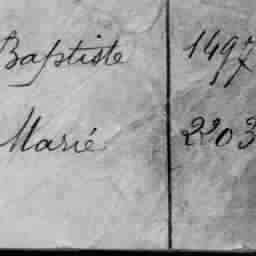 Baptiste 1497
Marié 2203